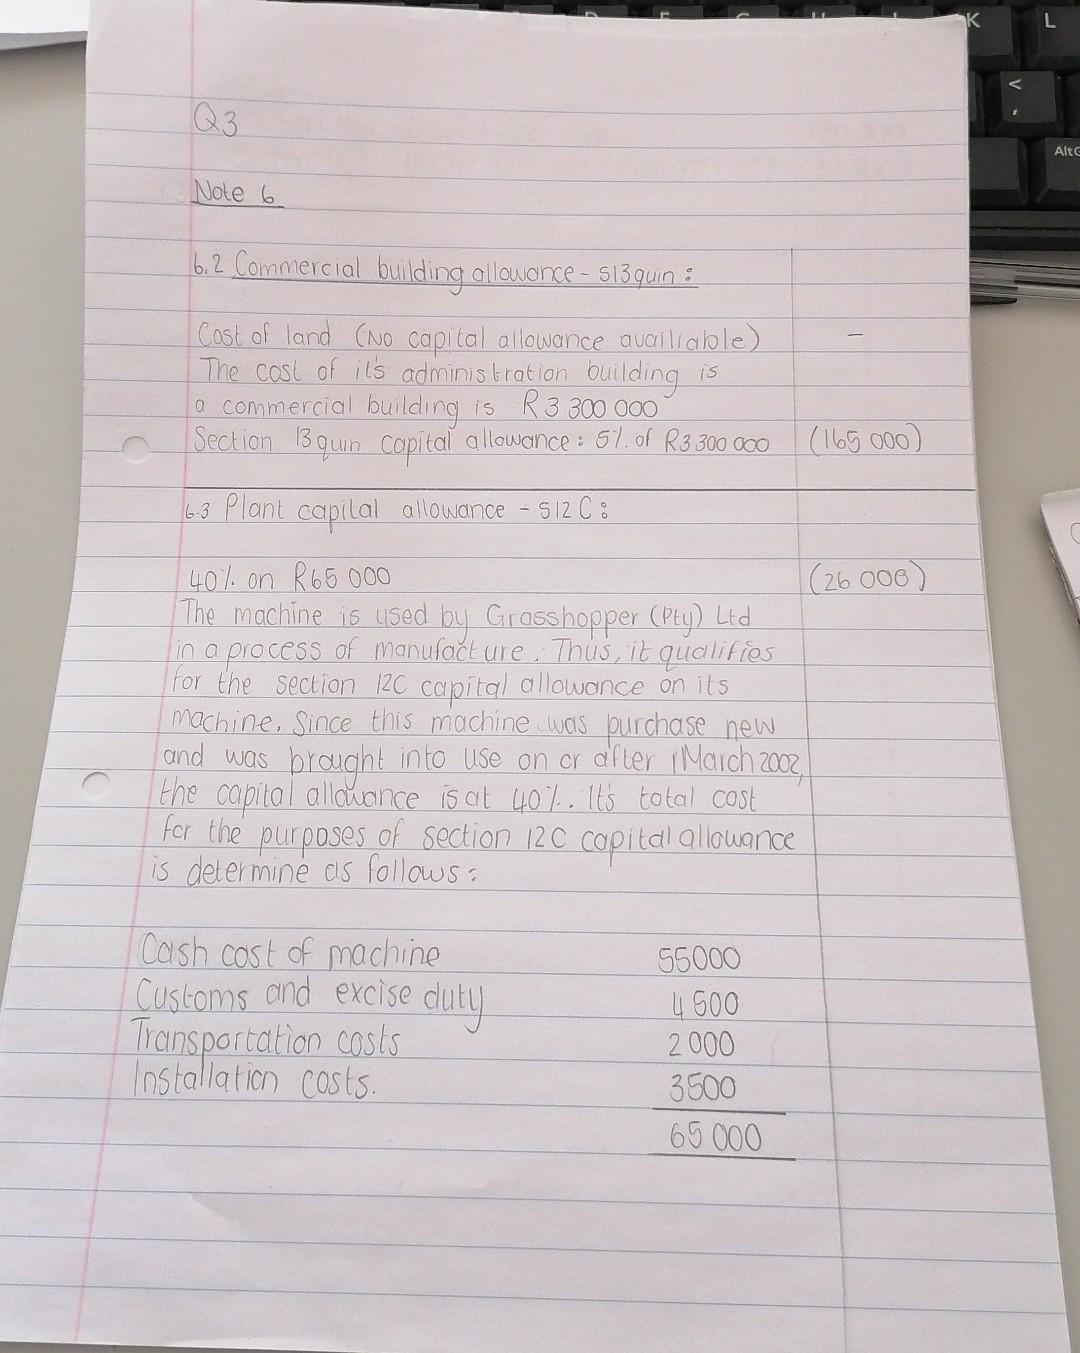 Q3
Note 6
6.2 Commercial building allowance - S13quin :
Cost of land (No capital allowance availiable) -
The cost of it's administration building is
a commercial building is R3 300 000
Section 13quin capital allowance : 5% of R3 300 000 (165 000)
6.3 Plant capital allowance - S12C :
40% on R65 000 (26 000)
The machine is used by Grasshopper (Pty) Ltd
in a process of manufacture. Thus, it qualifies
for the section 12C capital allowance on its
machine. Since this machine was purchase new
and was brought into use on or after 1 March 2002,
the capital allowance is at 40%. It's total cost
for the purposes of section 12C capital allowance
is determine as follows :
Cash cost of machine 55000
Customs and excise duty 4 500
Transportation costs 2 000
Installation costs. 3500
65 000
K L
<
,
AltG